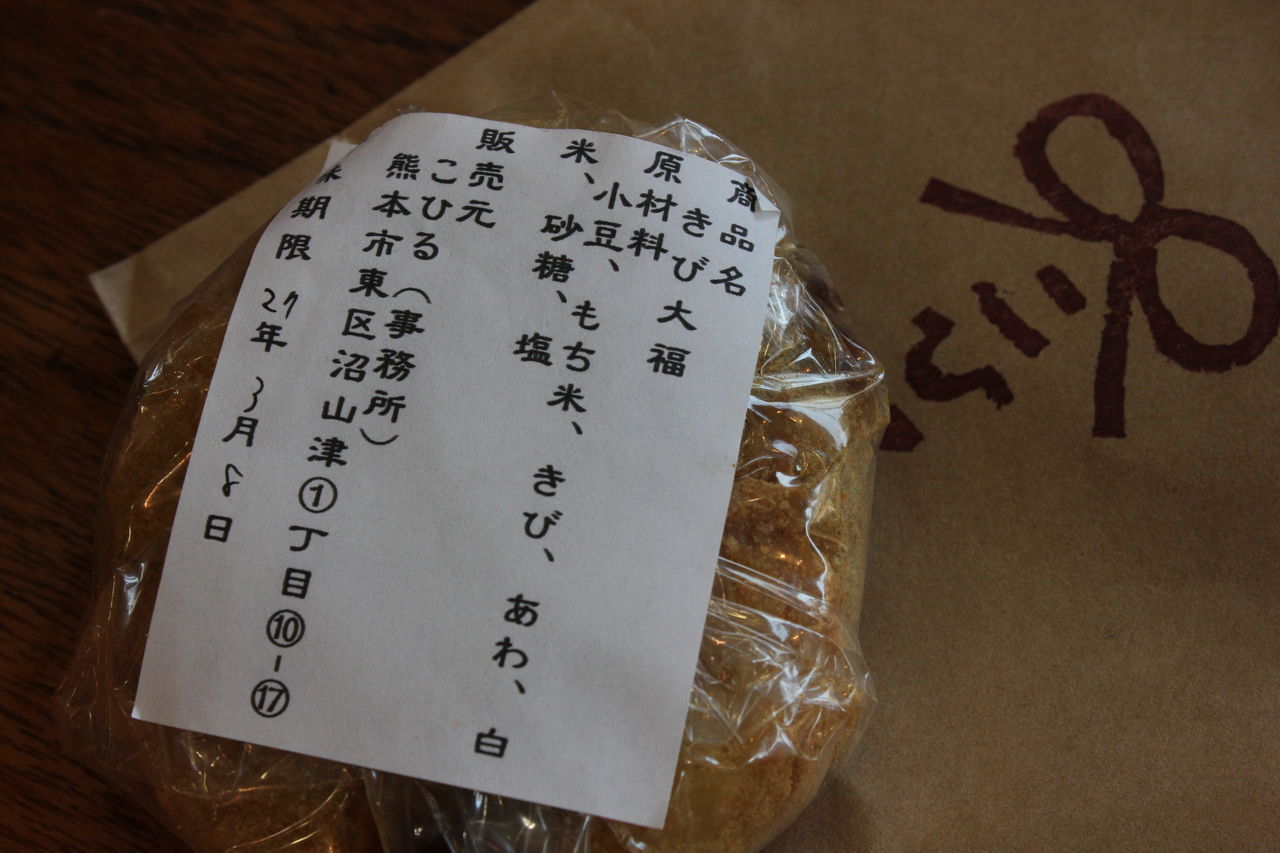 商品名
きび大福
原材料
小豆、もち米、きび、あわ、白
米、砂糖、塩
販売元
こひる(事務所)
熊本市東区沼山津①丁目⑩-⑰
味期限 27年3月8日